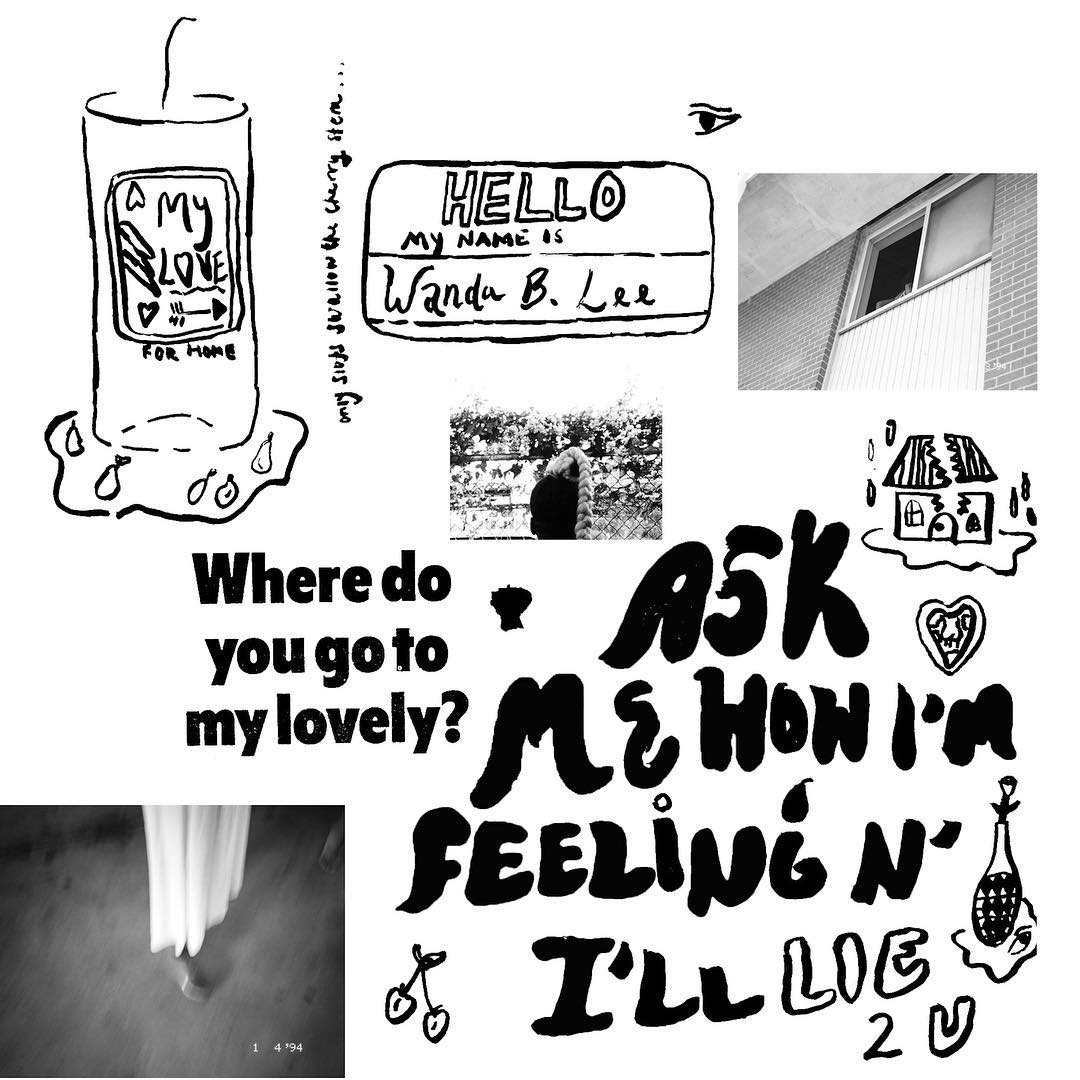 My
LOVE
FOR HOME
only sluts swallow the cherry stem...
HELLO
MY NAME IS
Wanda B. Lee
'94
Where do
you go to
my lovely?
ASK
ME HOW I'M
FEELING N'
I'LL LIE
2 U
1 4 '94